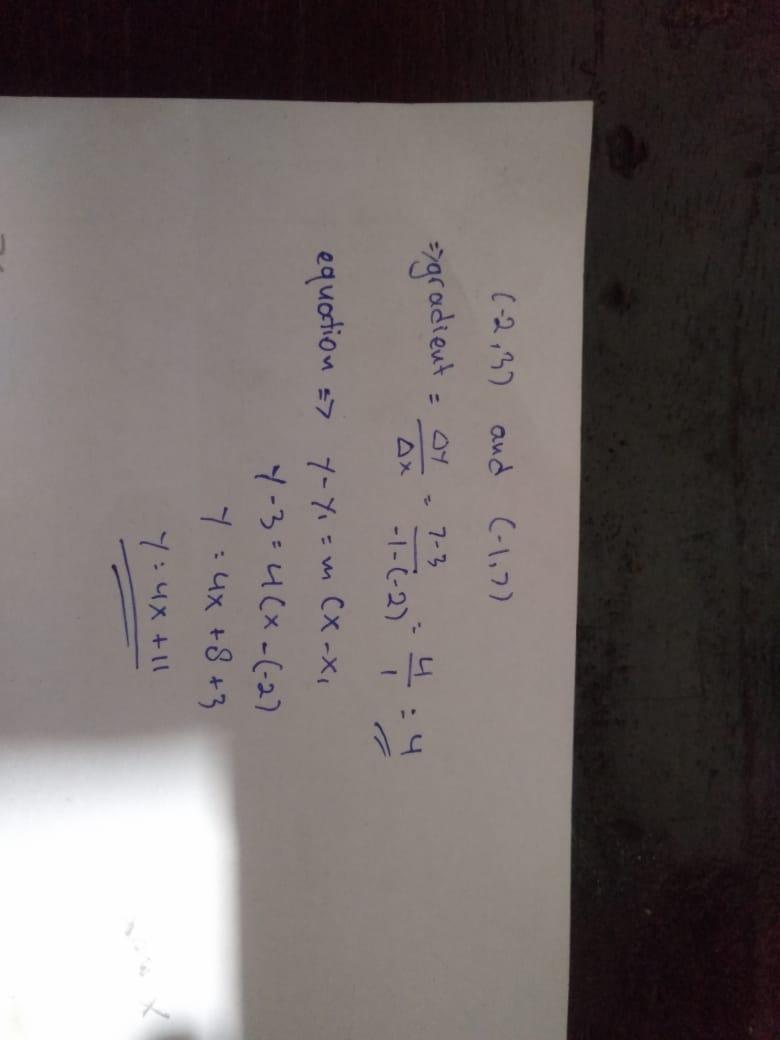 (-2,3) and (-1,7)
=>gradient = Δy/Δx = 7-3/-1-(-2) = 4/1 = 4
equation => y-y₁ = m(x-x₁
y-3 = 4(x-(-2)
y = 4x+8+3
y = 4x+11